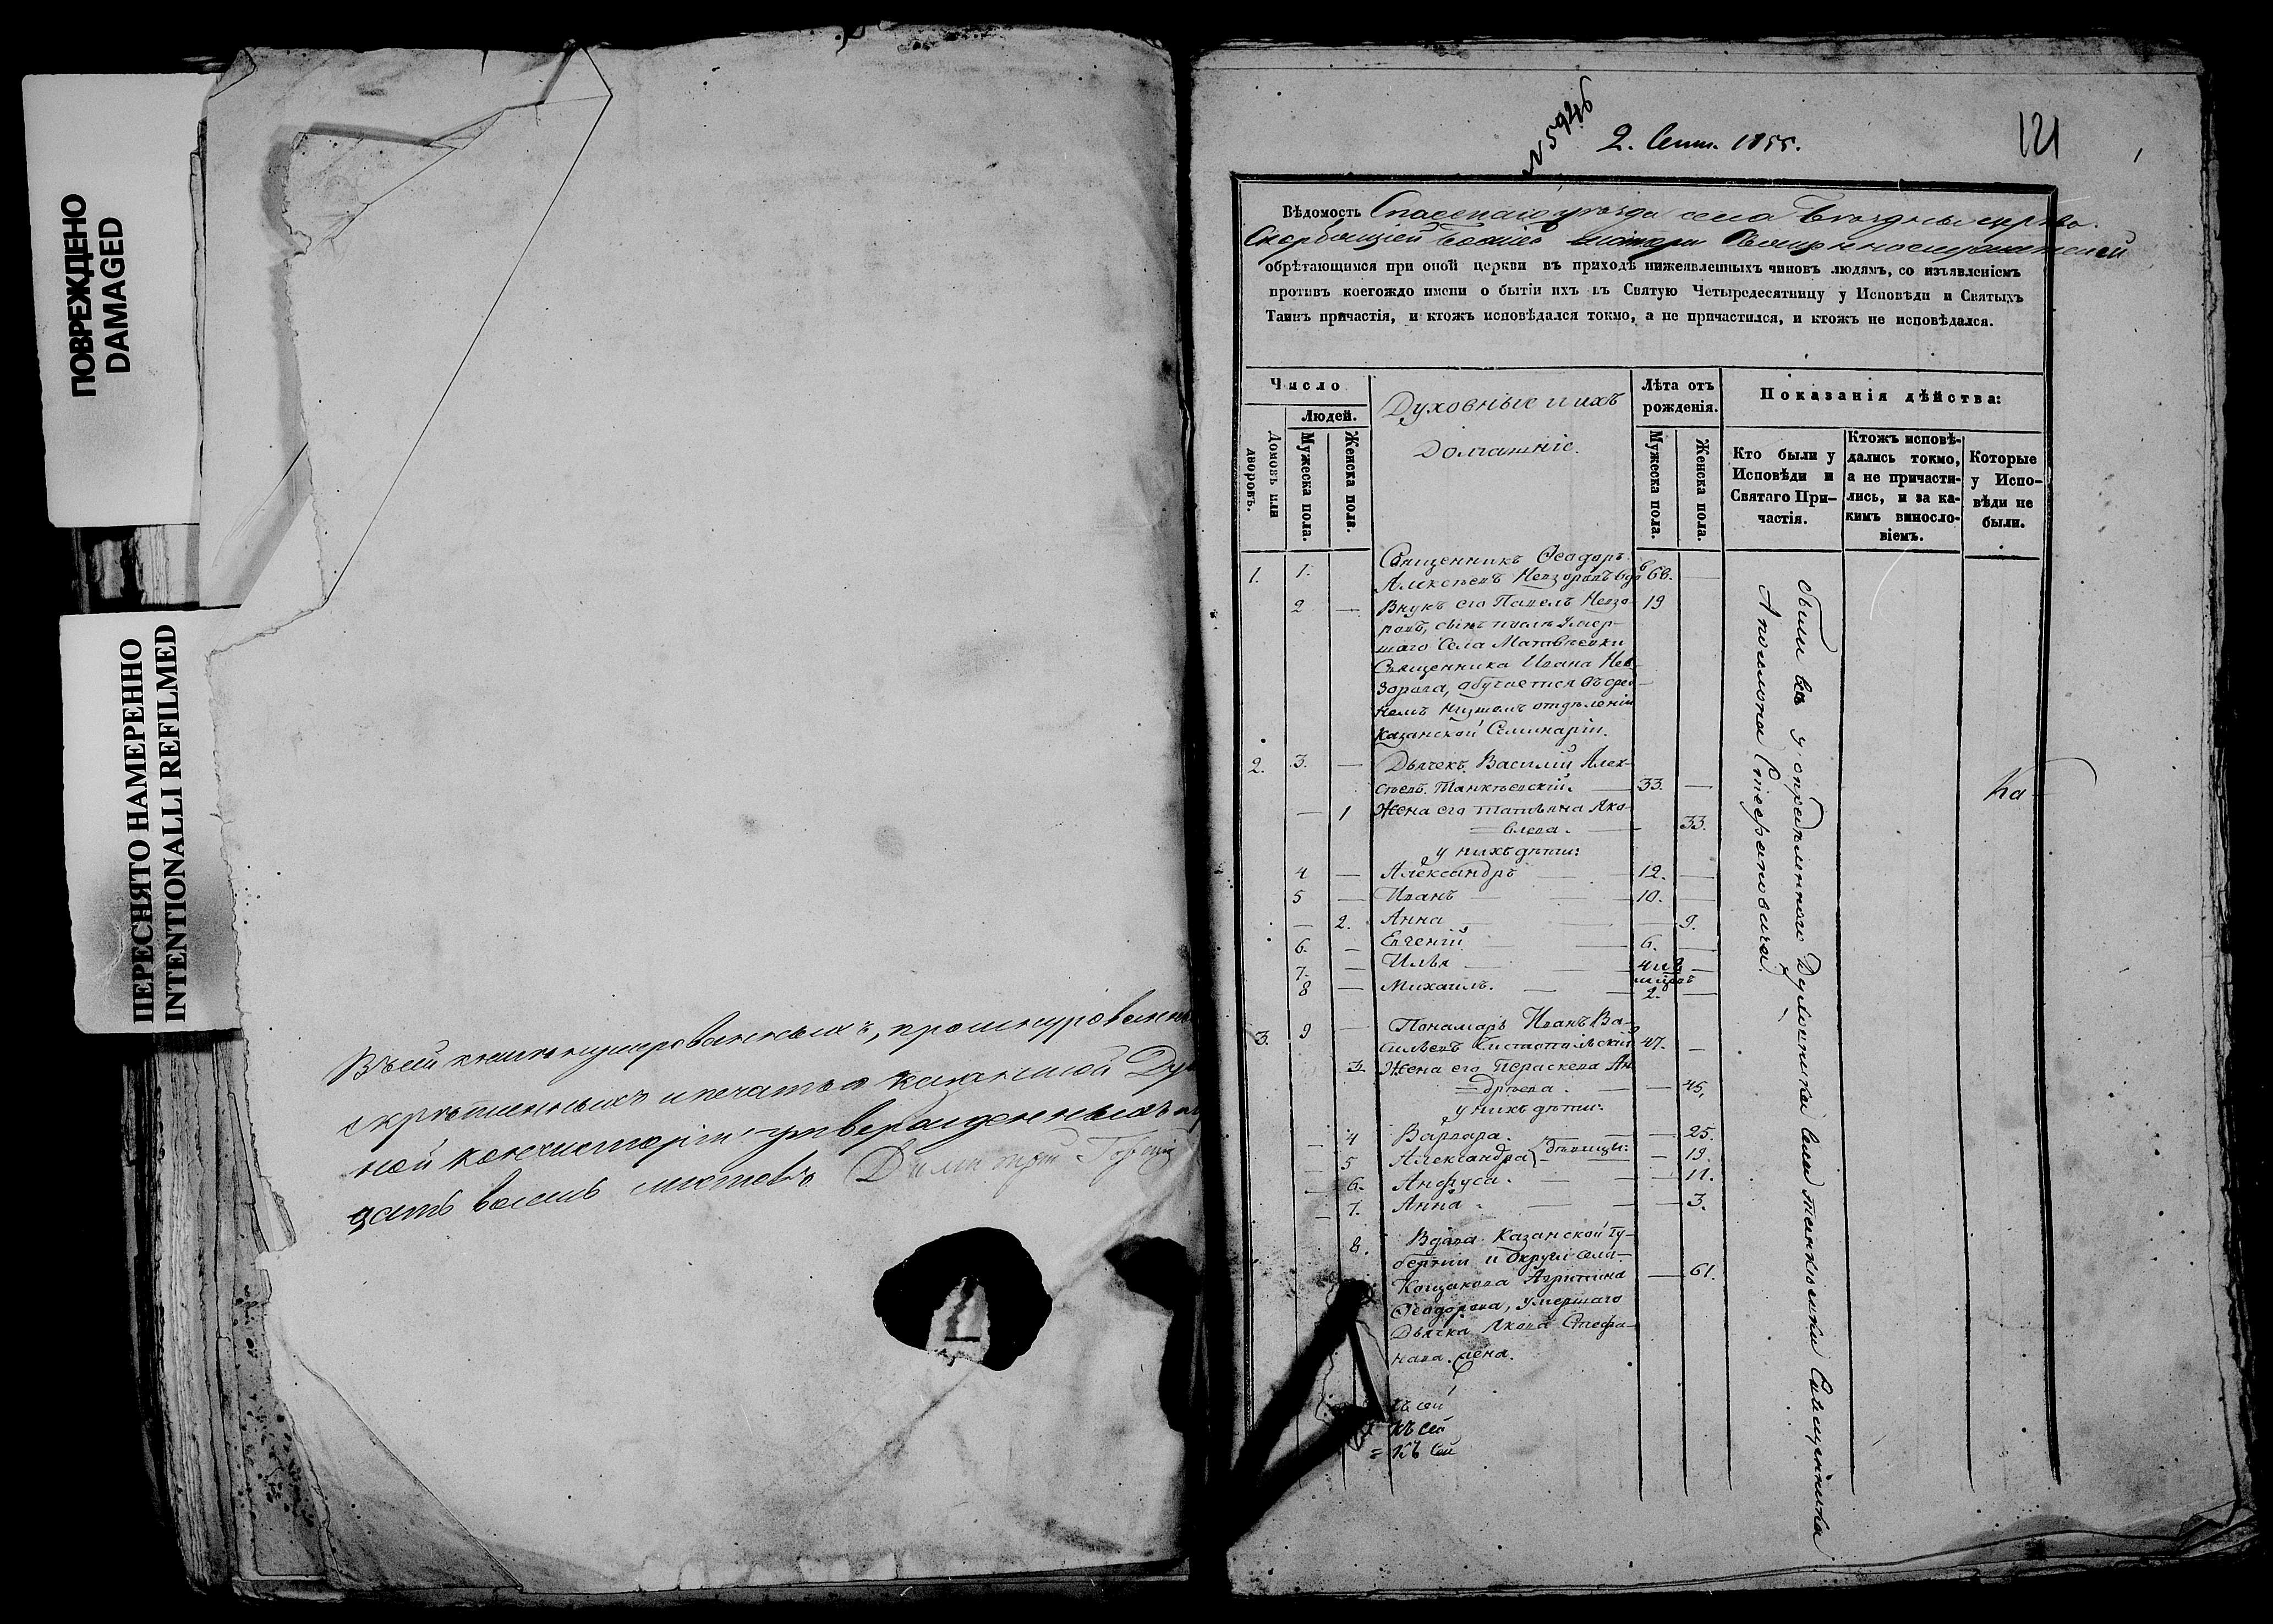 ПОВРЕЖДЕНО
DAMAGED
ПЕРЕСНЯТО НАМЕРЕННО
INTENTIONALLI REFILMED
Въ сей книге нумерованныхъ, прошнурованны
скрѣпленныхъ и печатью Казанской Ду
ной консисторіи утвержденныхъ
цать восемь листовъ
N 5946
2. Сент. 1855.
121
Вѣдомость Спасскаго уѣзда села церкви
Скорбящей Божіей Матери
обрѣтающимся при оной церкви въ приходѣ нижеявленныхъ чиновъ людямъ, со изъявленіемъ
противъ коегождо имени о бытіи ихъ въ Святую Четыредесятницу у Исповѣди и Святыхъ
Таинъ причастія, и ктожъ исповѣдался токмо, а не причастился, и ктожъ не исповѣдался.
Число
Людей.
Домовъ или дворовъ.
Мужеска пола.
Женска пола.
Духовные и ихъ
Домашніе.
Лѣта отъ рожденія.
Мужеска пола.
Женска пола.
Показанія дѣйства:
Кто были у Исповѣди и Святаго Причастія.
Ктожъ исповѣдались токмо, а не причастились, и за какимъ винословіемъ.
Которые у Исповѣди не были.
Священникъ Ѳеодоръ
1. 1. Алексѣевъ Невзоровъ 66.
2 — Внукъ его Павелъ Невзо- 19
ровъ, сынъ умер-
шаго села Матвѣевки
Священника Ивана Нев-
зорова, обучается въ сред-
немъ отдѣленіи
Казанской Семинаріи.
2. 3. — Дьячекъ Василій Алек-
сѣевъ Танкѣевскій. 33. —
— 1 Жена его Татьяна Яко-
=влева. — 33.
у нихъ дѣти:
4 — Александръ — 12. —
5 — Иванъ — 10. —
— 2. Анна — 9.
6. — Евгеній — 6. —
7. — Илья — 4 —
8 — Михаилъ. — 2. —
3. 9 — Пономарь Иванъ Ва-
сильевъ Чистопольскій 47. —
3. Жена его Параскева Ан-
=дреева. — 45,
у нихъ дѣти:
— 4 Варвара. — 25.
— 5 Александра дѣвицы: — 19.
— 6. Анфуса. — 11.
— 7. Анна. — 3.
8. Вдова Казанской Гу-
берніи и округи села
Кощакова Агрипина — 61.
Ѳеодорова, умершаго
Дьячка Якова Стефа-
нова жена.
къ сей
къ сей
= къ сей
были всѣ у опредѣленнаго Духовника села Танкѣевки Священника
Аполлона
Ка-